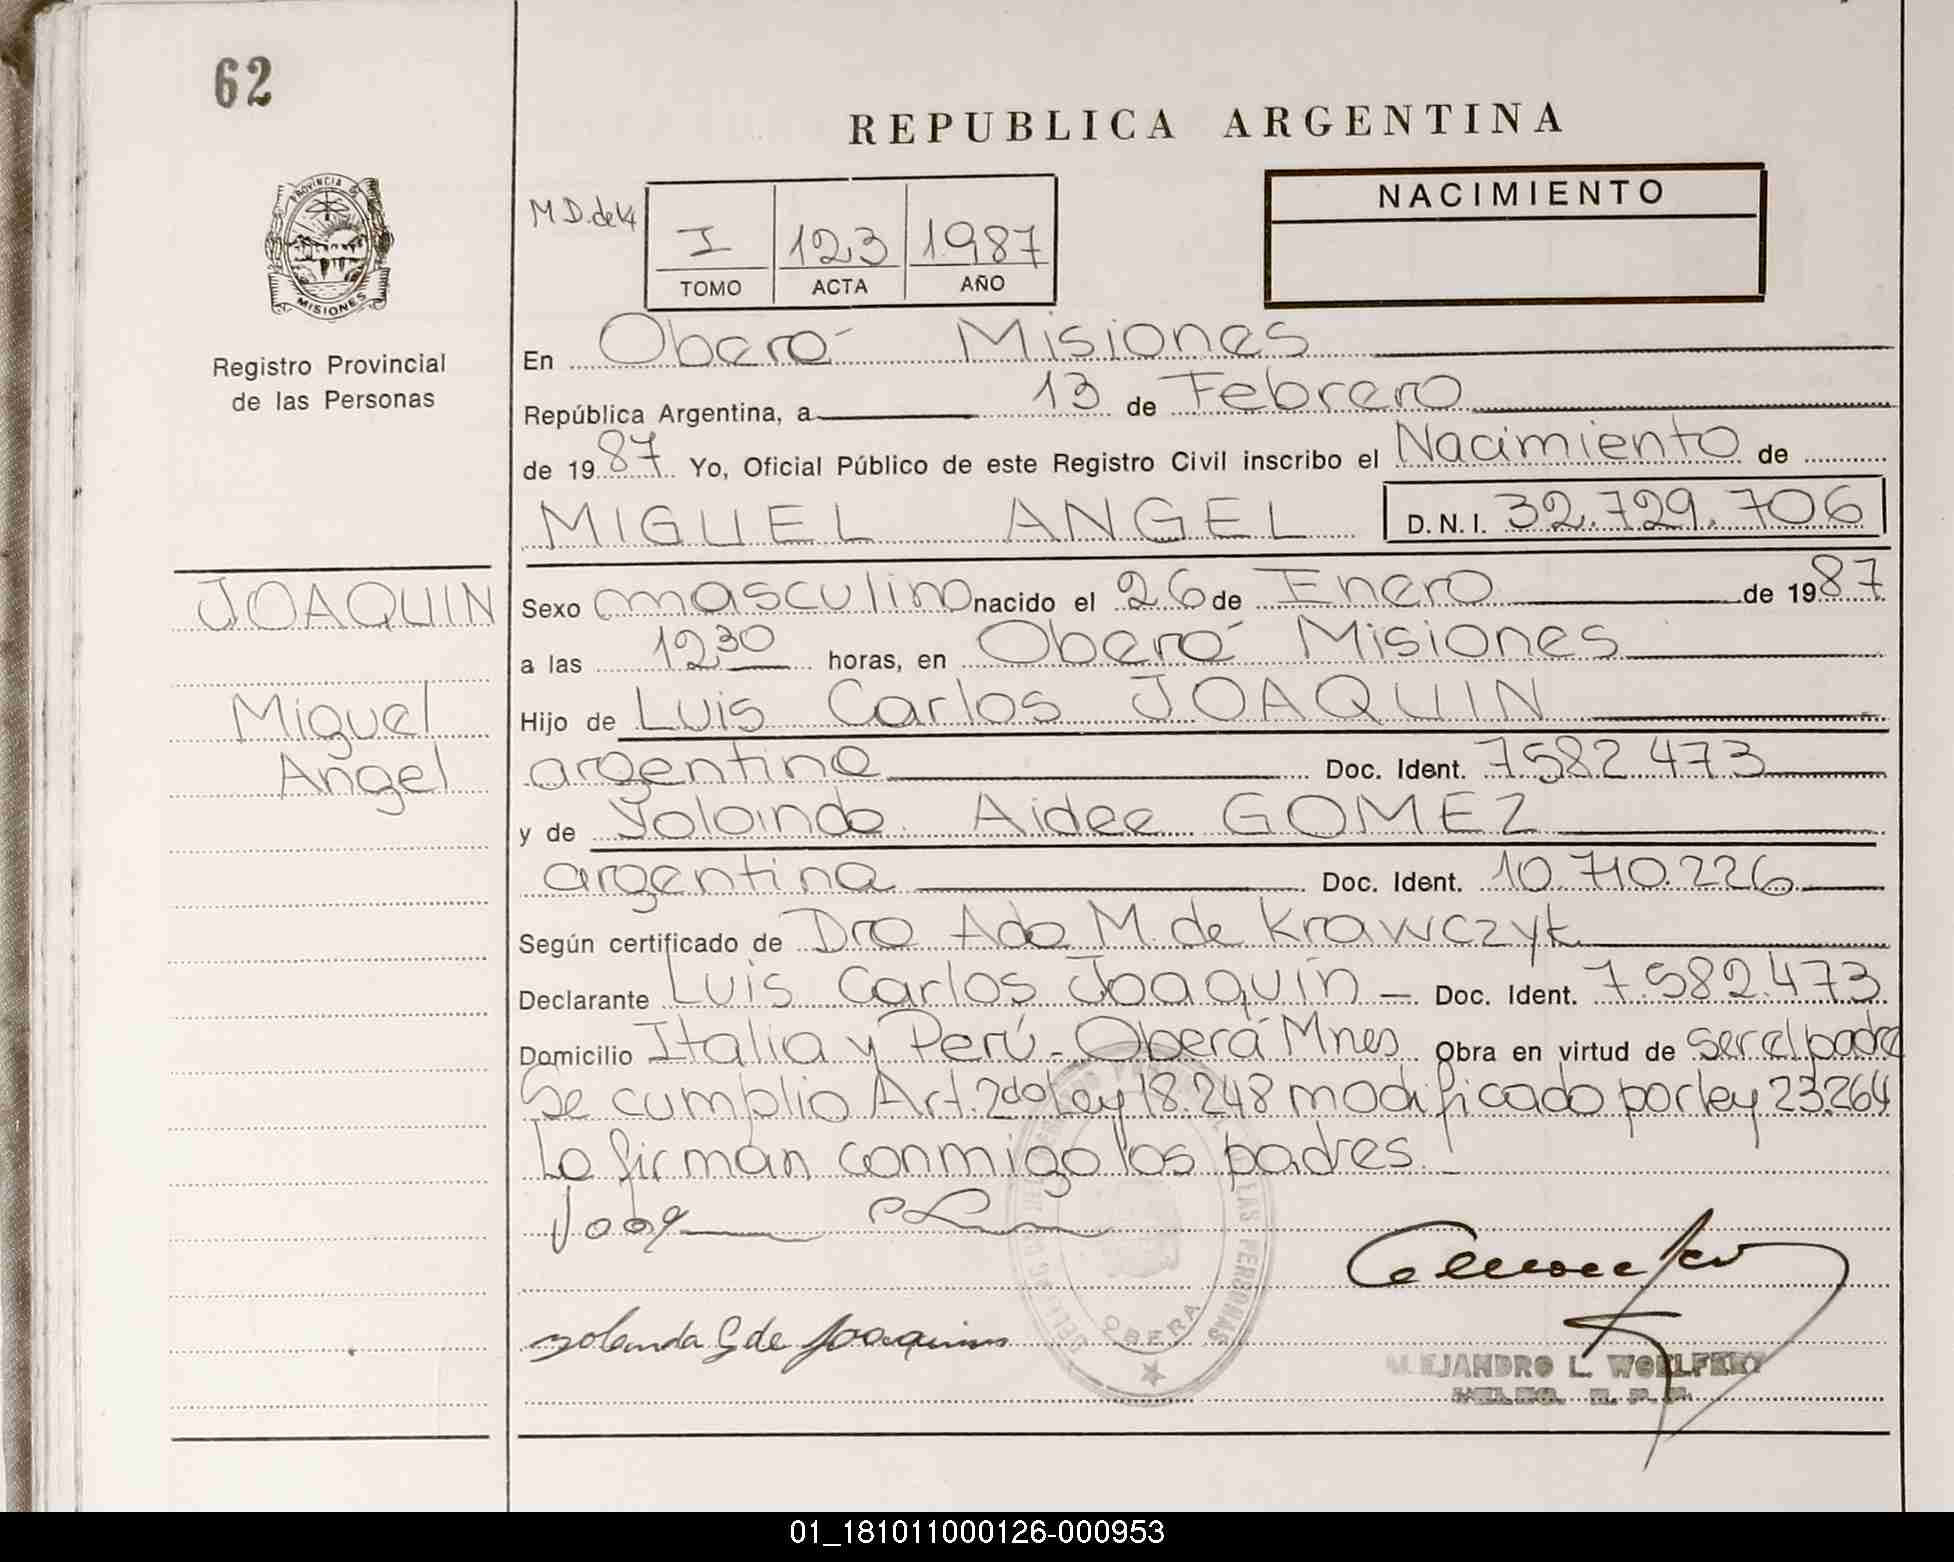 62
REPUBLICA ARGENTINA
PROVINCIA DE
MISIONES
Registro Provincial
de las Personas
M.D. de 4
I 123 1987
TOMO ACTA AÑO
NACIMIENTO
En Oberá Misiones
República Argentina, a 13 de Febrero
de 1987 Yo, Oficial Público de este Registro Civil inscribo el Nacimiento de
MIGUEL ANGEL D.N.I. 32.729.706
JOAQUIN
Miguel
Angel
Sexo masculino nacido el 26 de Enero de 1987
a las 12,30 horas, en Oberá Misiones
Hijo de Luis Carlos JOAQUIN
argentina Doc. Ident. 7582473
y de Yolanda Aidee GOMEZ
argentina Doc. Ident. 10.710.226
Según certificado de Dra Ada M. de Krawczyk
Declarante Luis Carlos Joaquín - Doc. Ident. 7.582.473
Domicilio Italia y Perú - Oberá Mnes Obra en virtud de ser el padre
Se cumplio Art. 2do Ley 18.248 modificado por ley 23.264
Lo firman conmigo los padres.-
Yolanda G de Joaquin
OBERA
ALEJANDRO L. WOELFERT
DELEG. R. P. P.
01_181011000126-000953